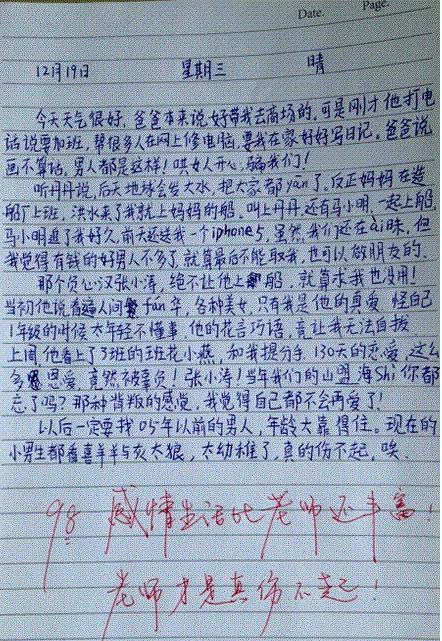 Date.
Page.
12月19日 星期三 晴
今天天气很好,爸爸本来说好带我去商场的,可是刚才他打电
话说要加班,帮很多人在网上修电脑,要我在家好好写日记。爸爸说
画不算话,男人都是这样!哄女人开心,骗我们!
听丹丹说,后天地球会发大水,把大家都yān了。反正妈妈在造
船厂上班,洪水来了我就上妈妈的船。叫上丹丹,还有马小明,一起上船。
马小明追了我好久,前天还送我一个iphone5,虽然我们还在ài昧,但
我觉得有钱的好男人不多了,就算最后不能取我,也可以做朋友的。
那个负心汉张小涛,绝不让他上船,就算求我也没用!
当初他说看遍人间fán华,各种美女,只有我是他的真爱 怪自己
1年级的时候太年轻不懂事,他的花言巧语,竟让我无法自拔
上周他看上了3班的班花小燕,和我提分手,130天的恋爱,这么
多恩爱,竟然被辜负!张小涛!当年我们的山盟海Shì你都
忘了吗?那种背叛的感觉,我觉得自己都不会再爱了!
以后一定要找05年以前的男人,年龄大靠得住。现在的
小男生都看喜羊羊与灰太狼,太幼稚了,真的伤不起,唉.
98 感情生活比老师还丰富!
老师才是真伤不起!